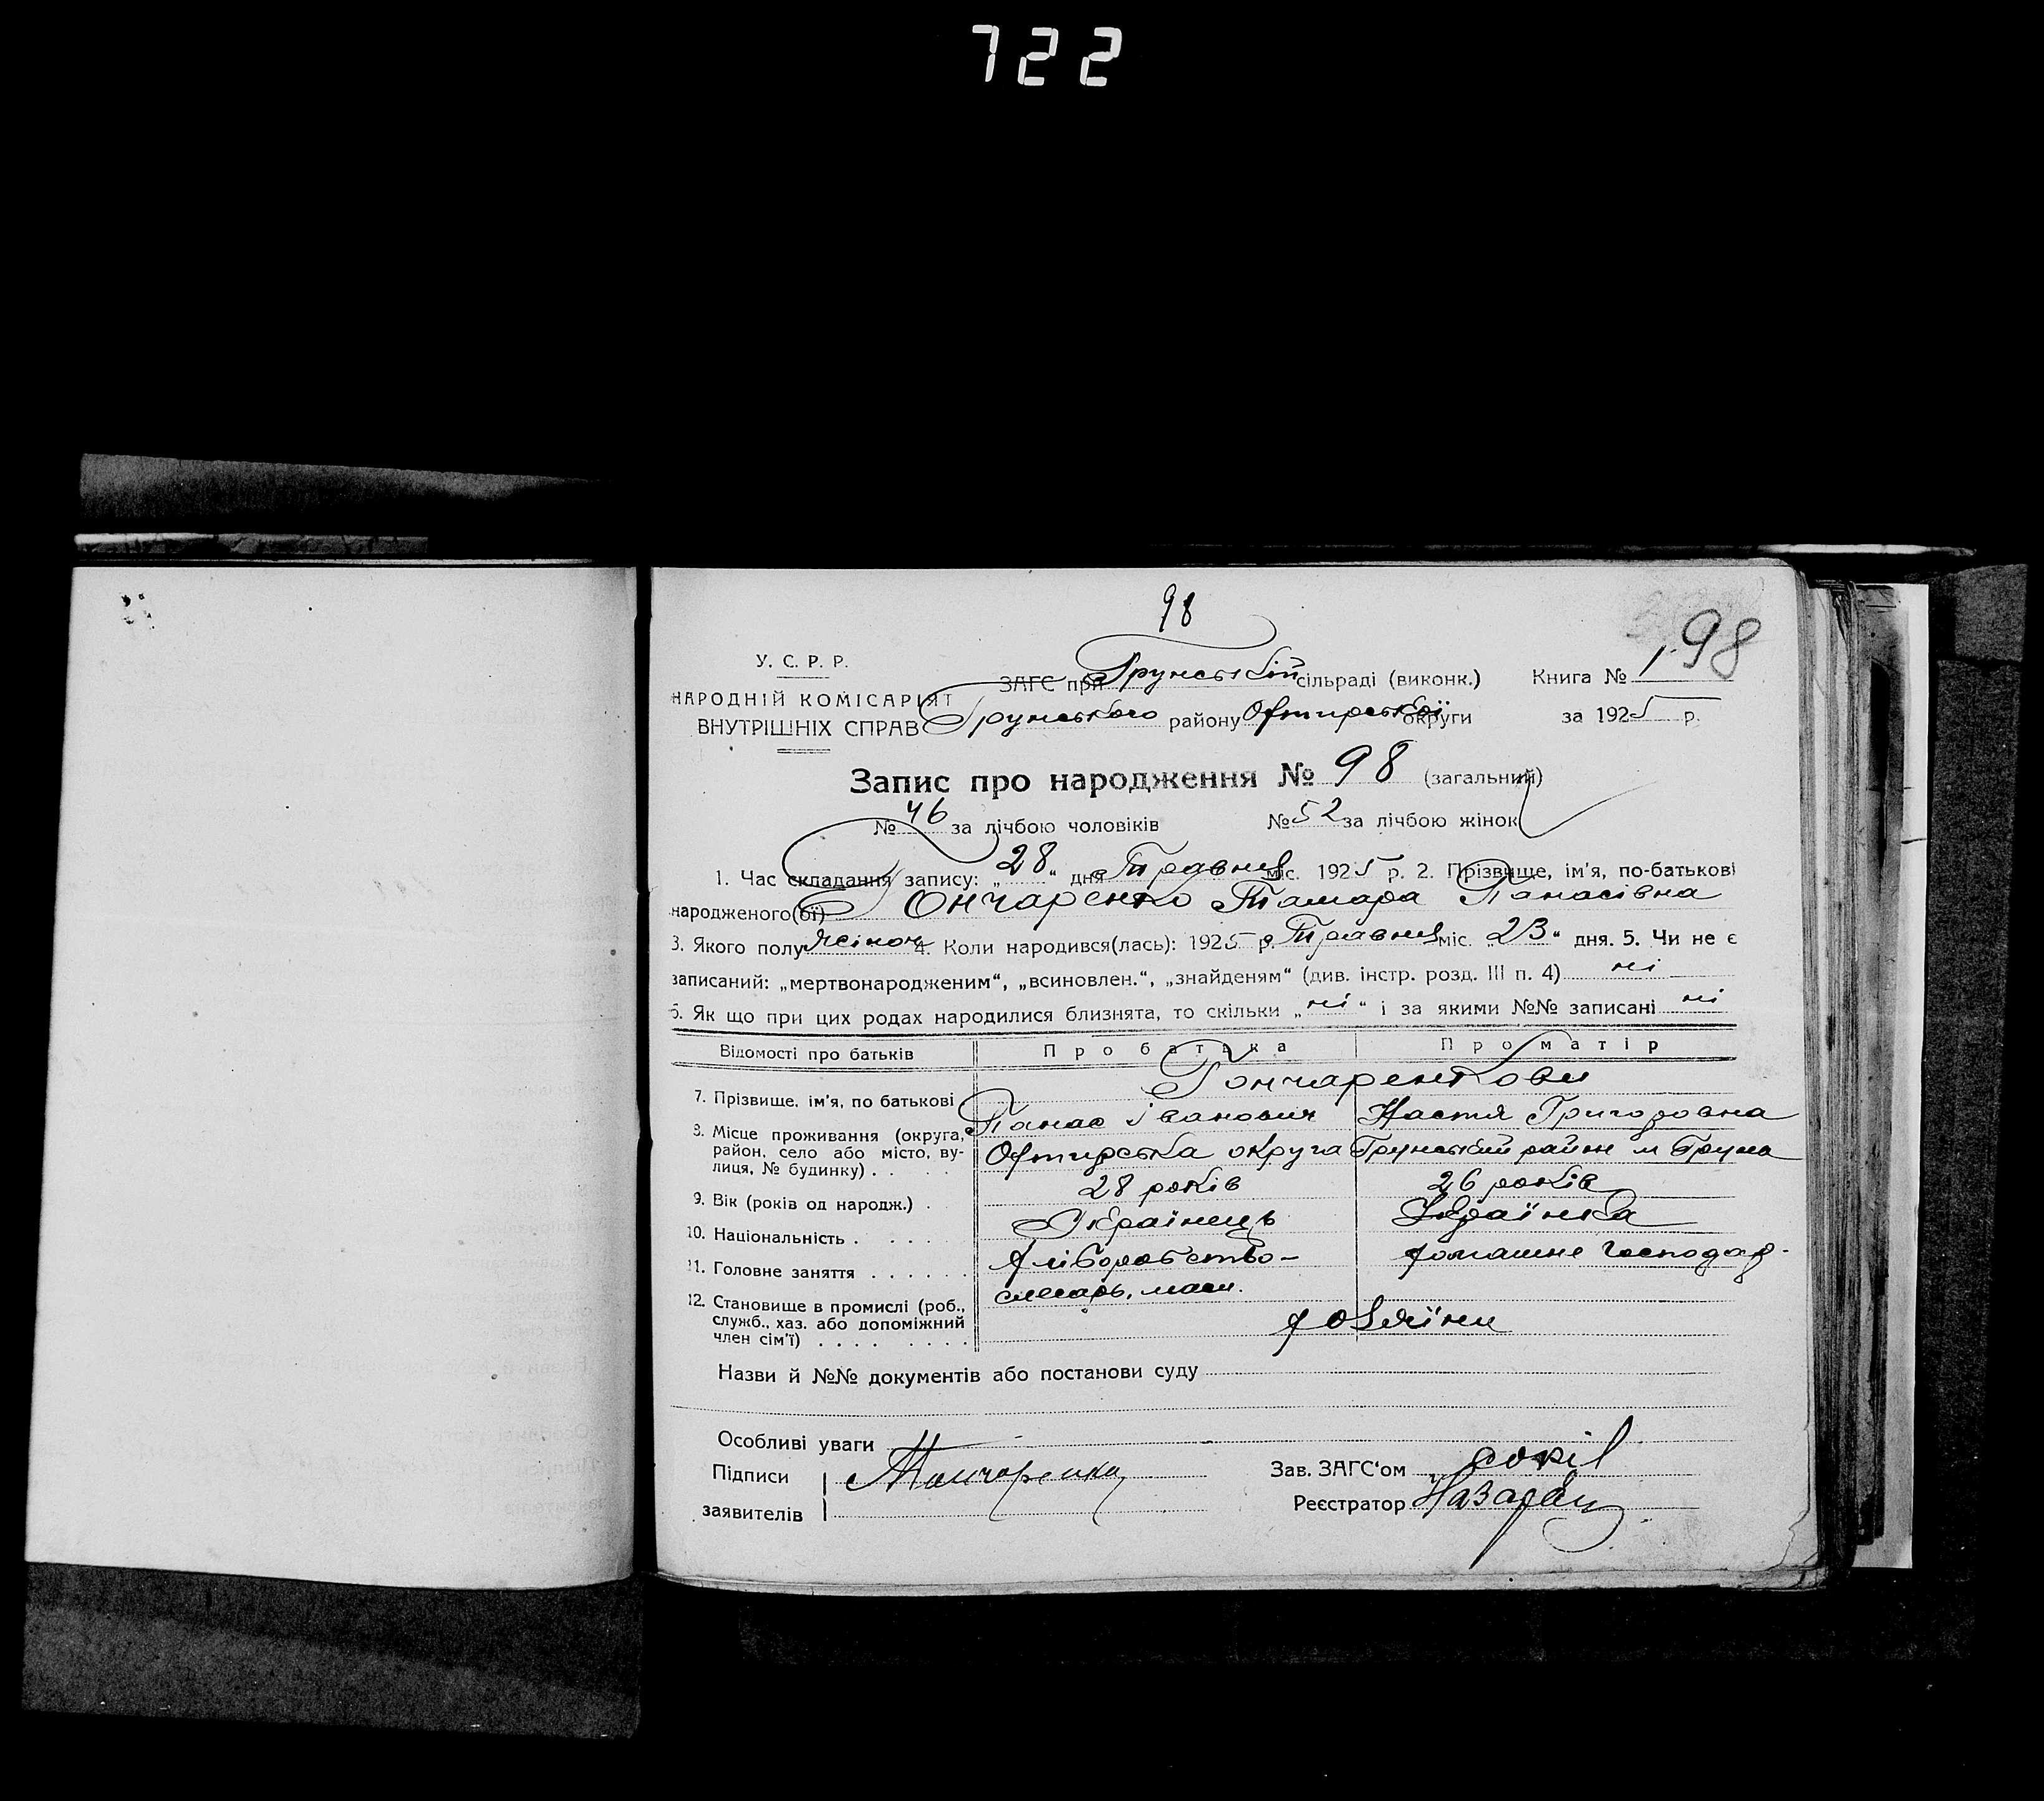 722
98
198
У. С. Р. Р.
НАРОДНІЙ КОМІСАРІЯТ
ВНУТРІШНІХ СПРАВ
ЗАГС при Грунській сільраді (виконк.) Книга № 1
Грунського району Охтирської округи за 1925 р.
Запис про народження № 98 (загальний)
№ 46 за лічбою чоловіків № 52 за лічбою жінок
1. Час складання запису: „28“ дня Травня міс. 1925 р. 2. Прізвище, ім'я, по-батькові
народженого(ої) Гончаренко Тамара Панасівна
3. Якого полу жіноч 4. Коли народився(лась): 1925 р. Травня міс. „23“ дня. 5. Чи не є
записаний: „мертвонародженим“, „всиновлен.“, „знайденям“ (див. інстр. розд. III п. 4) ні
6. Як що при цих родах народилися близнята, то скільки „ні“ і за якими №№ записані ні
Відомості про батьків Про батька Про матір
Гончаренкови
7. Прізвище, ім'я, по батькові Панас Іванович Настя Григоровна
8. Місце проживання (округа, район, село або місто, вулиця, № будинку) . . . Охтирська округа Грунський район м Груна
9. Вік (років од народж.) . 28 років 26 років
10. Національність . . . . Українець Українка
11. Головне заняття . . . . . . Хліборобство- домашнє господар-
слесарь, маш.
12. Становище в промислі (роб., служб., хаз. або допоміжний член сім'ї) . . . . . . . . хозяїни
Назви й №№ документів або постанови суду
Особливі уваги
Підписи Гончаренко Зав. ЗАГС‘ом Сокіл
заявителів Реєстратор